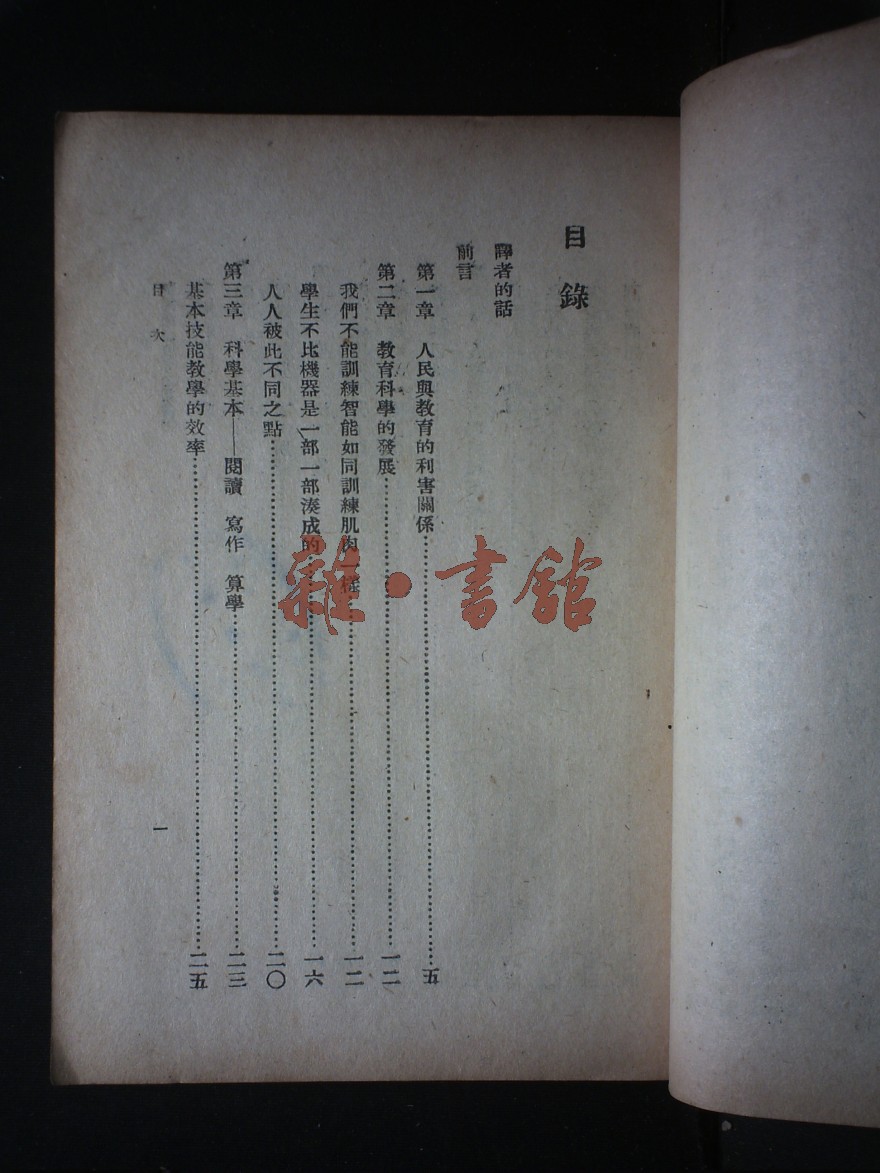 目錄
譯者的話
前言
第一章 人民與教育的利害關係……五
第二章 教育科學的發展……一二
我們不能訓練智能如同訓練肌肉一樣……一二
學生不比機器是一部一部湊成的……一六
人人彼此不同之點……二〇
第三章 科學基本——閱讀 寫作 算學……二三
基本技能教學的效率……二五
目次
一
雜·書館